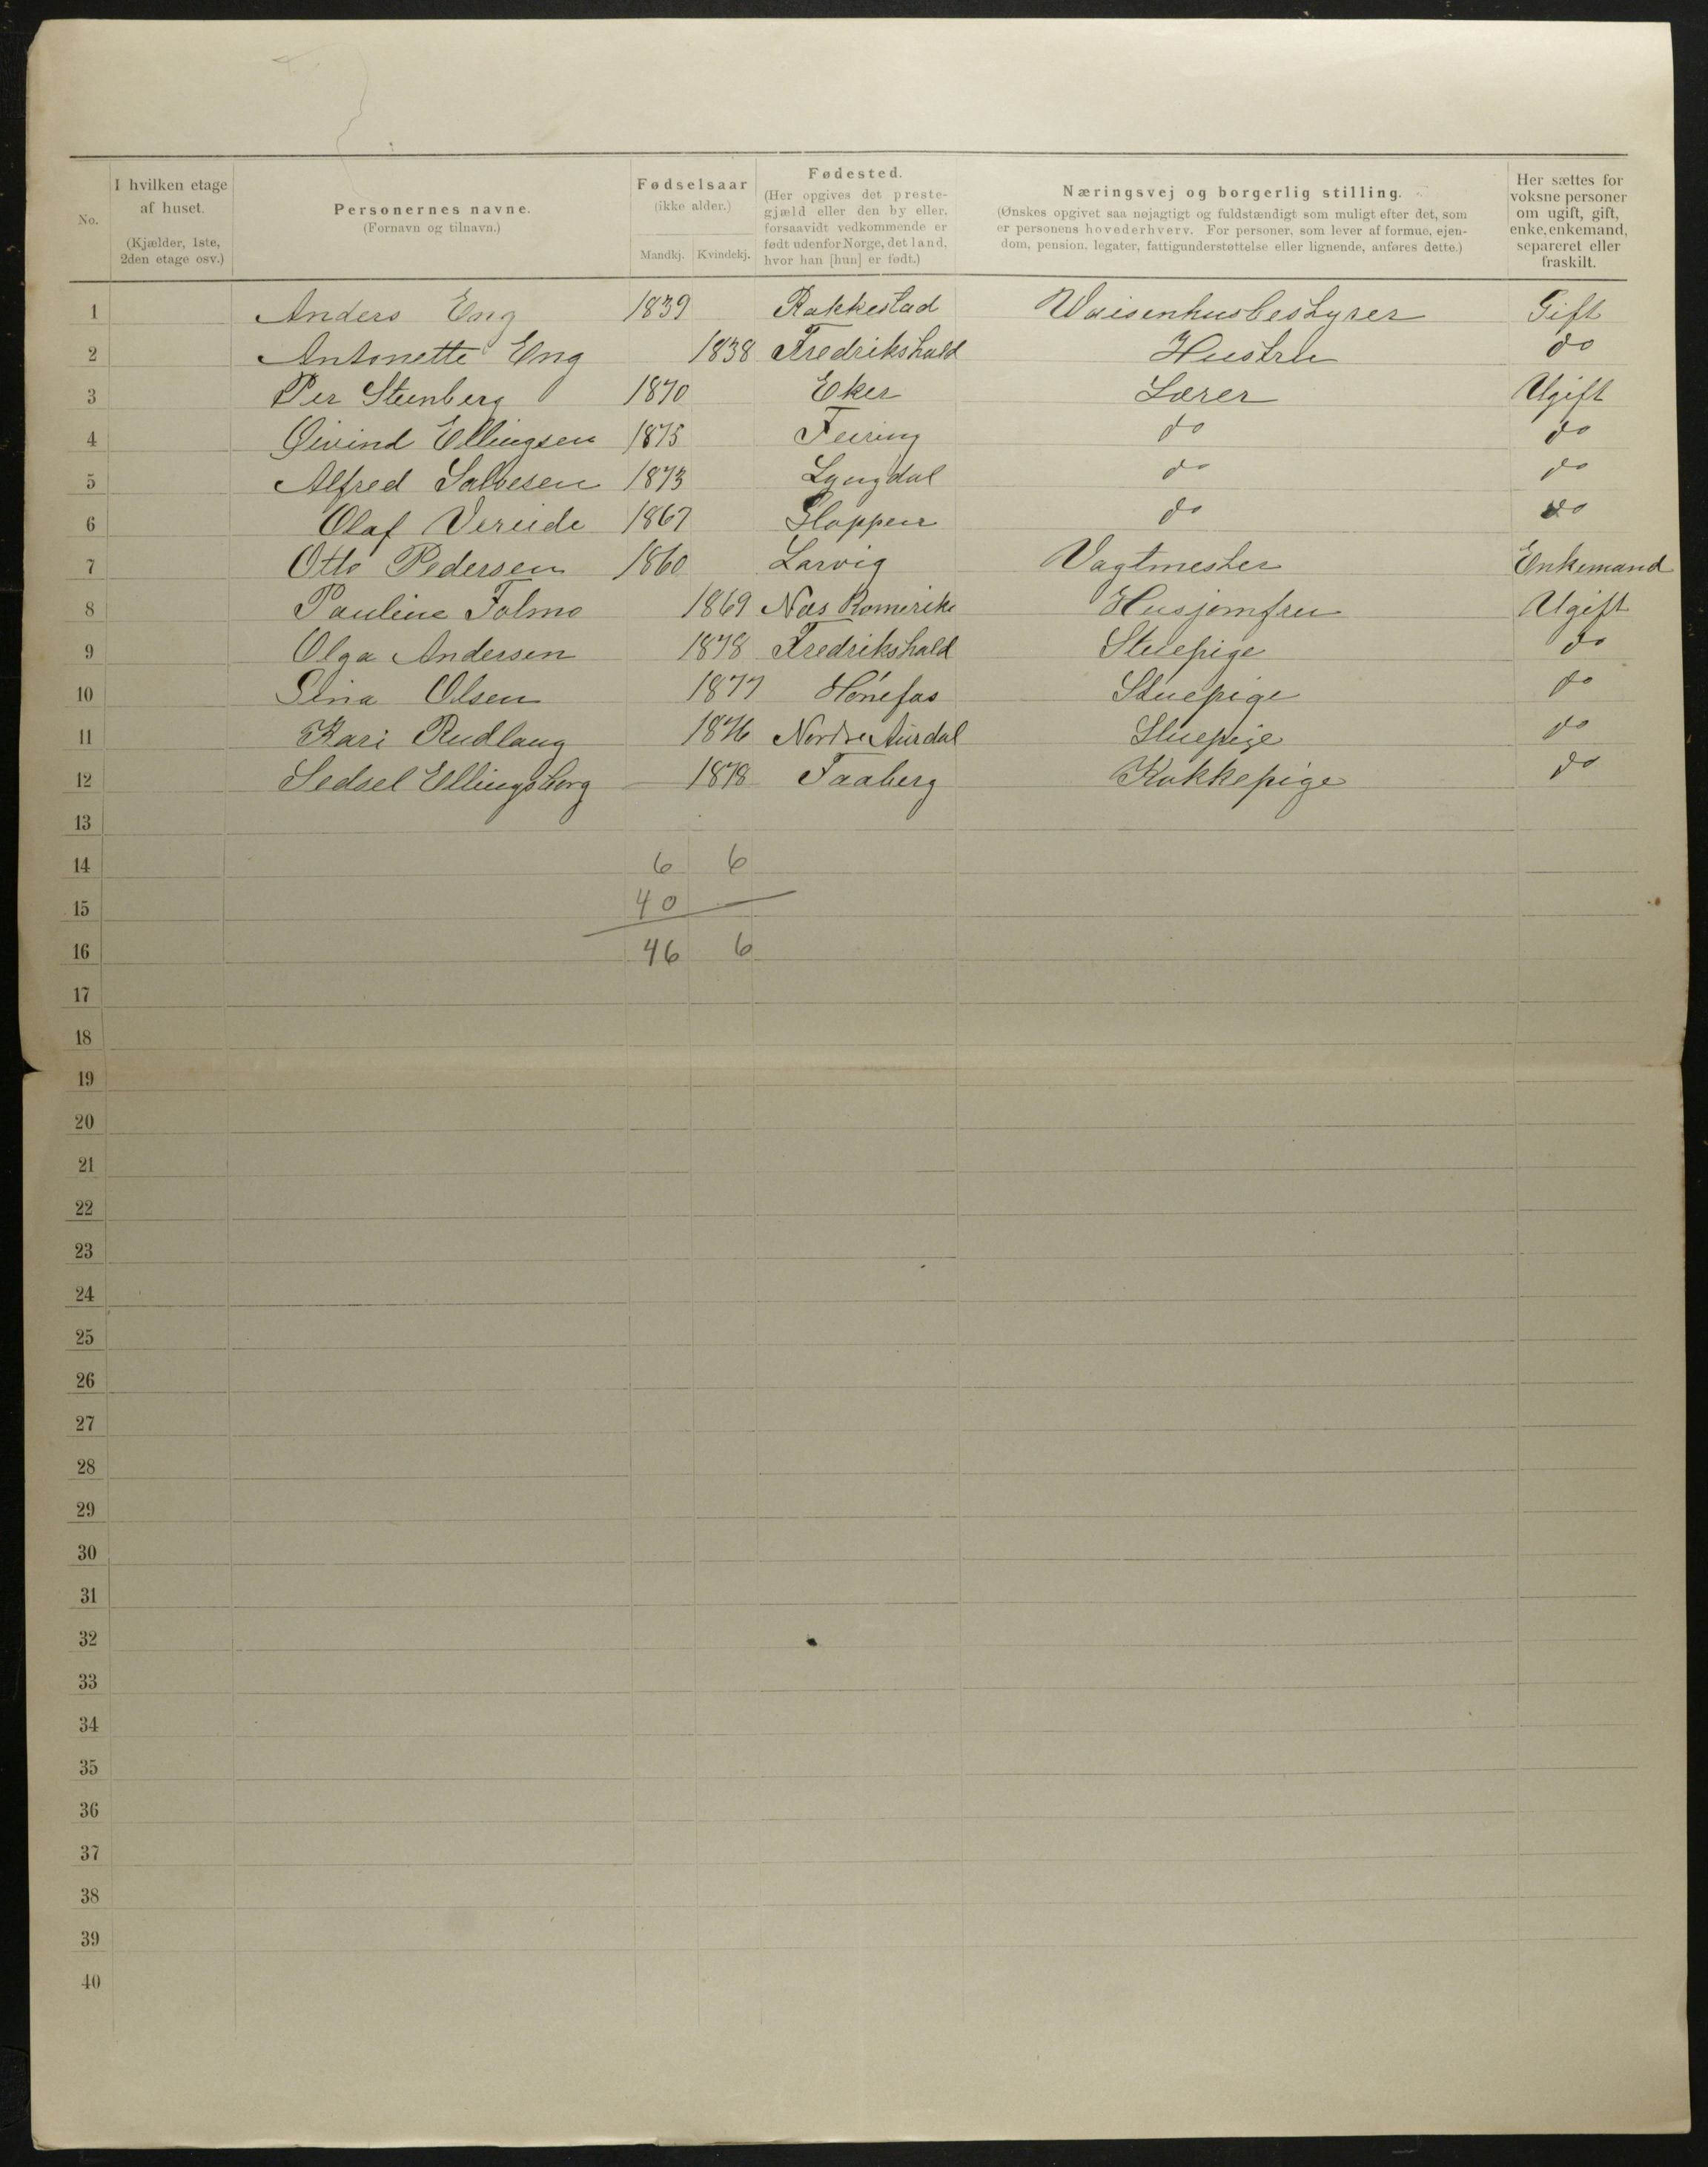 No.
I hvilken etage af huset. (Kjælder, 1ste, 2den etage osv.)
Personernes navne. (Fornavn og tilnavn.)
Fødselsaar (ikke alder.) Mandkj. Kvindekj.
Fødested. (Her opgives det prestegjæld eller den by eller, forsaavidt vedkommende er født udenfor Norge, det land, hvor han [hun] er født.)
Næringsvej og borgerlig stilling. (Ønskes opgivet saa nøjagtigt og fuldstændigt som muligt efter det, som er personens hovederhverv. For personer, som lever af formue, ejendom, pension, legater, fattigunderstøttelse eller lignende, anføres dette.)
Her sættes for voksne personer om ugift, gift, enke, enkemand, separeret eller fraskilt.
1 Anders Eng 1839 Rakkestad Waisenhusbestyrer Gift
2 Antonette Eng 1838 Fredrikshald Hustru do
3 Per Steenberg 1870 Eker Lærer Ugift
4 Øivind Ellingsen 1875 Feiring do do
5 Alfred Salvesen 1873 Lyngdal do do
6 Olaf Vereide 1867 Gloppen do do
7 Otto Pedersen 1860 Larvig Vagtmester Enkemand
8 Pauline Folmo 1869 Næs Romerike Husjomfru Ugift
9 Olga Andersen 1878 Fredrikshald Stuepige do
10 Sina Olsen 1877 Hönefos Stuepige do
11 Kari Rudlang 1876 Nordre Aurdal Stuepige do
12 Sedsel Ellingsborg 1878 Faaberg Kokkepige do
13
14 6 6
15 40 —
16 46 6
17
18
19
20
21
22
23
24
25
26
27
28
29
30
31
32
33
34
35
36
37
38
39
40